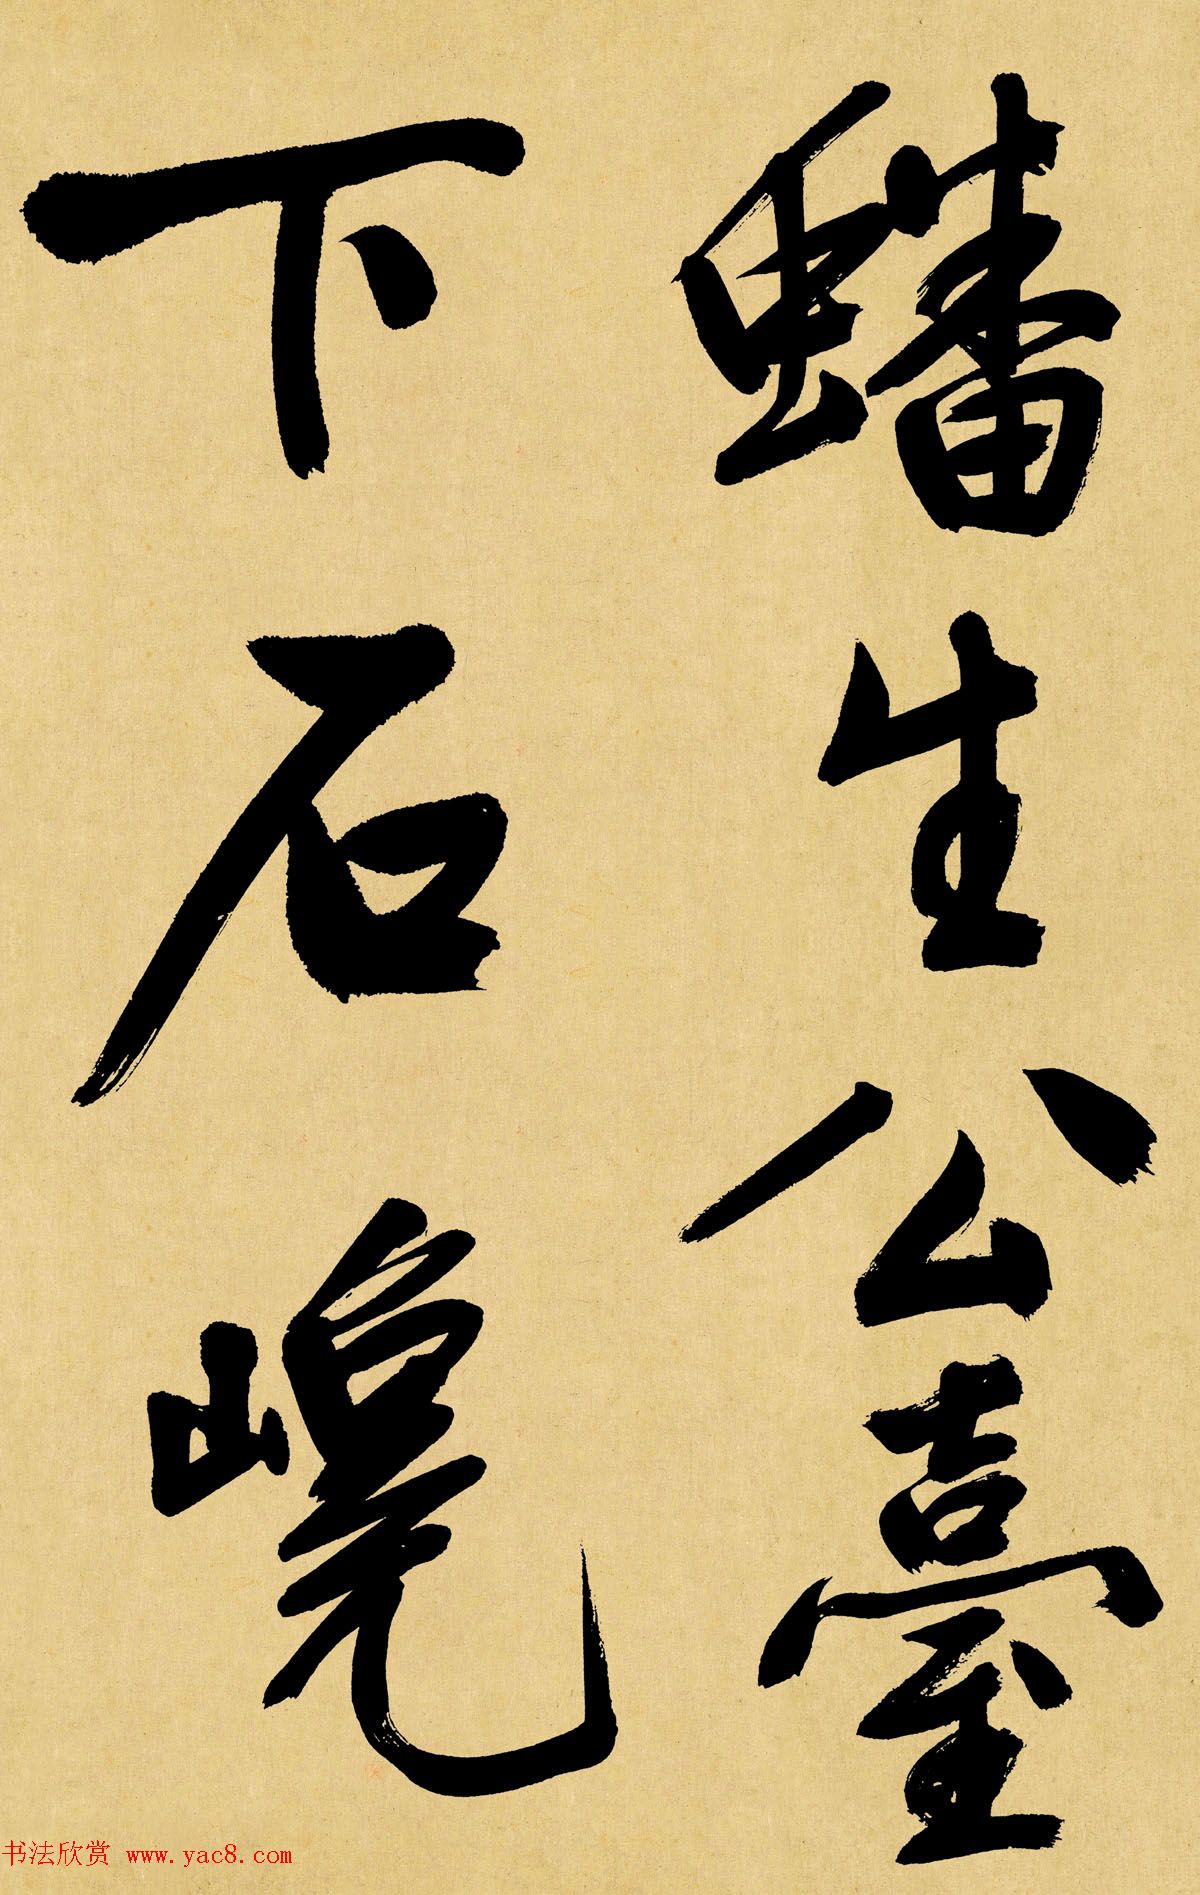 蟠生公臺
下石㟴
书法欣赏 www.yac8.com